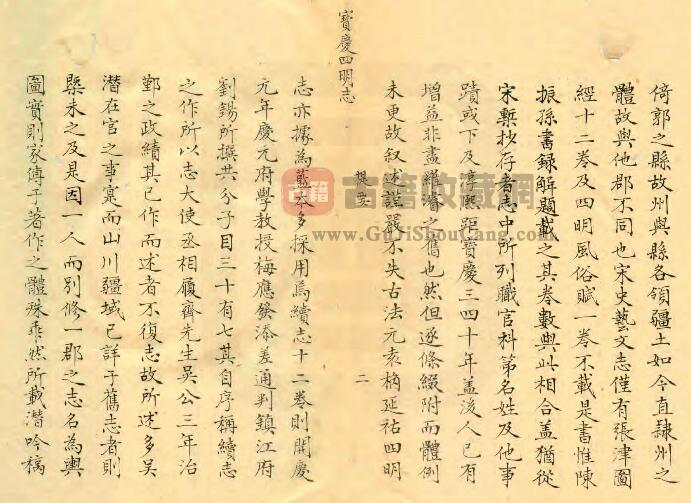 倚郭之縣故州與縣各領疆土如今直隸州之
體故與他郡不同也宋史藝文志僅有張津圖
經十二卷及四明風俗賦一卷不載是書惟陳
振孫書錄解題載之其卷數與此相合蓋猶從
宋槧抄存者志中所列職官科第名姓及他事
蹟或下及淳熙距寶慶三四十年蓋後人已有
增益非盡羅濬之舊也然但逐條綴附而體例
未更故叙述謹嚴不失古法元袁桷延祐四明
寶慶四明志
提要
二
志亦據為藍本多採用焉續志十二卷則開慶
元年慶元府學教授梅應發添差通判鎮江府
劉錫所撰共分子目三十有七其自序稱續志
之作所以志大使丞相履齋先生吳公三年治
鄞之政績其已作而述者不復志故所述多吳
潛在官之事寔而山川疆域已詳于舊志者則
槩未之及是因一人而別修一郡之志名為輿
圖實則家傳于著作之體殊乖然所載潛吟稿
古籍
古籍收藏网
www.GuJiShouCang.com